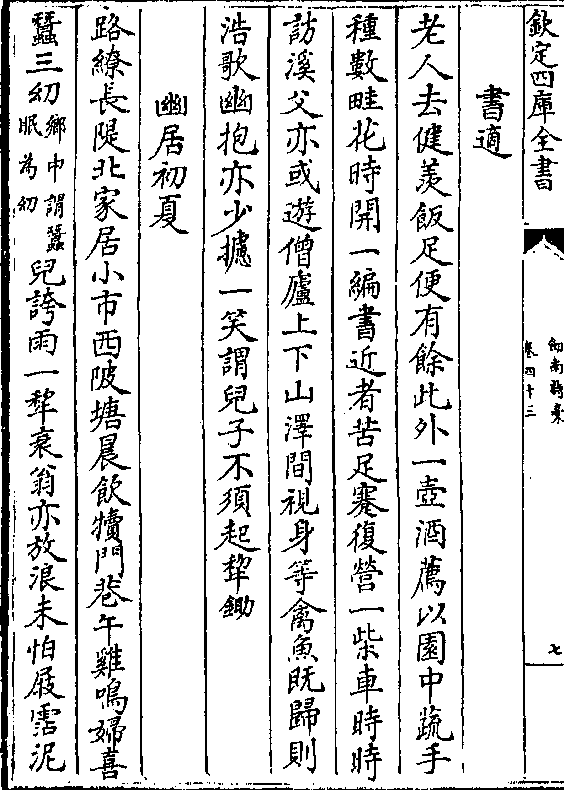 欽定四庫全書
劒南詩槀
卷四十三
七
書適
老人去健羨飯足便有餘此外一壺酒薦以園中蔬手
種數畦花時開一編書近者苦足蹇復營一柴車時時
訪溪父亦或遊僧廬上下山澤間視身等禽魚既歸則
浩歌幽抱亦少攄一笑謂兒子不須起犂鋤
幽居初夏
路繚長隄北家居小市西陂塘晨飲犢門巷午雞鳴婦喜
蠶三幼鄉中謂蠶眠為幼兒誇雨一犂衰翁亦放浪未怕屐霑泥